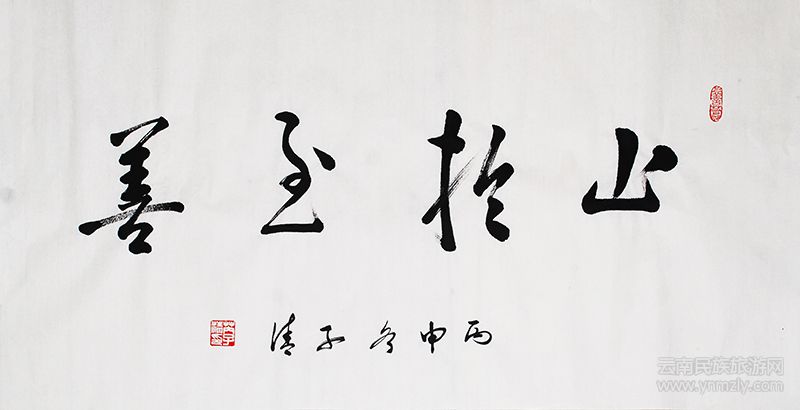 止於至善
丙申冬子清
云南民族旅游网
www.ynmzly.com